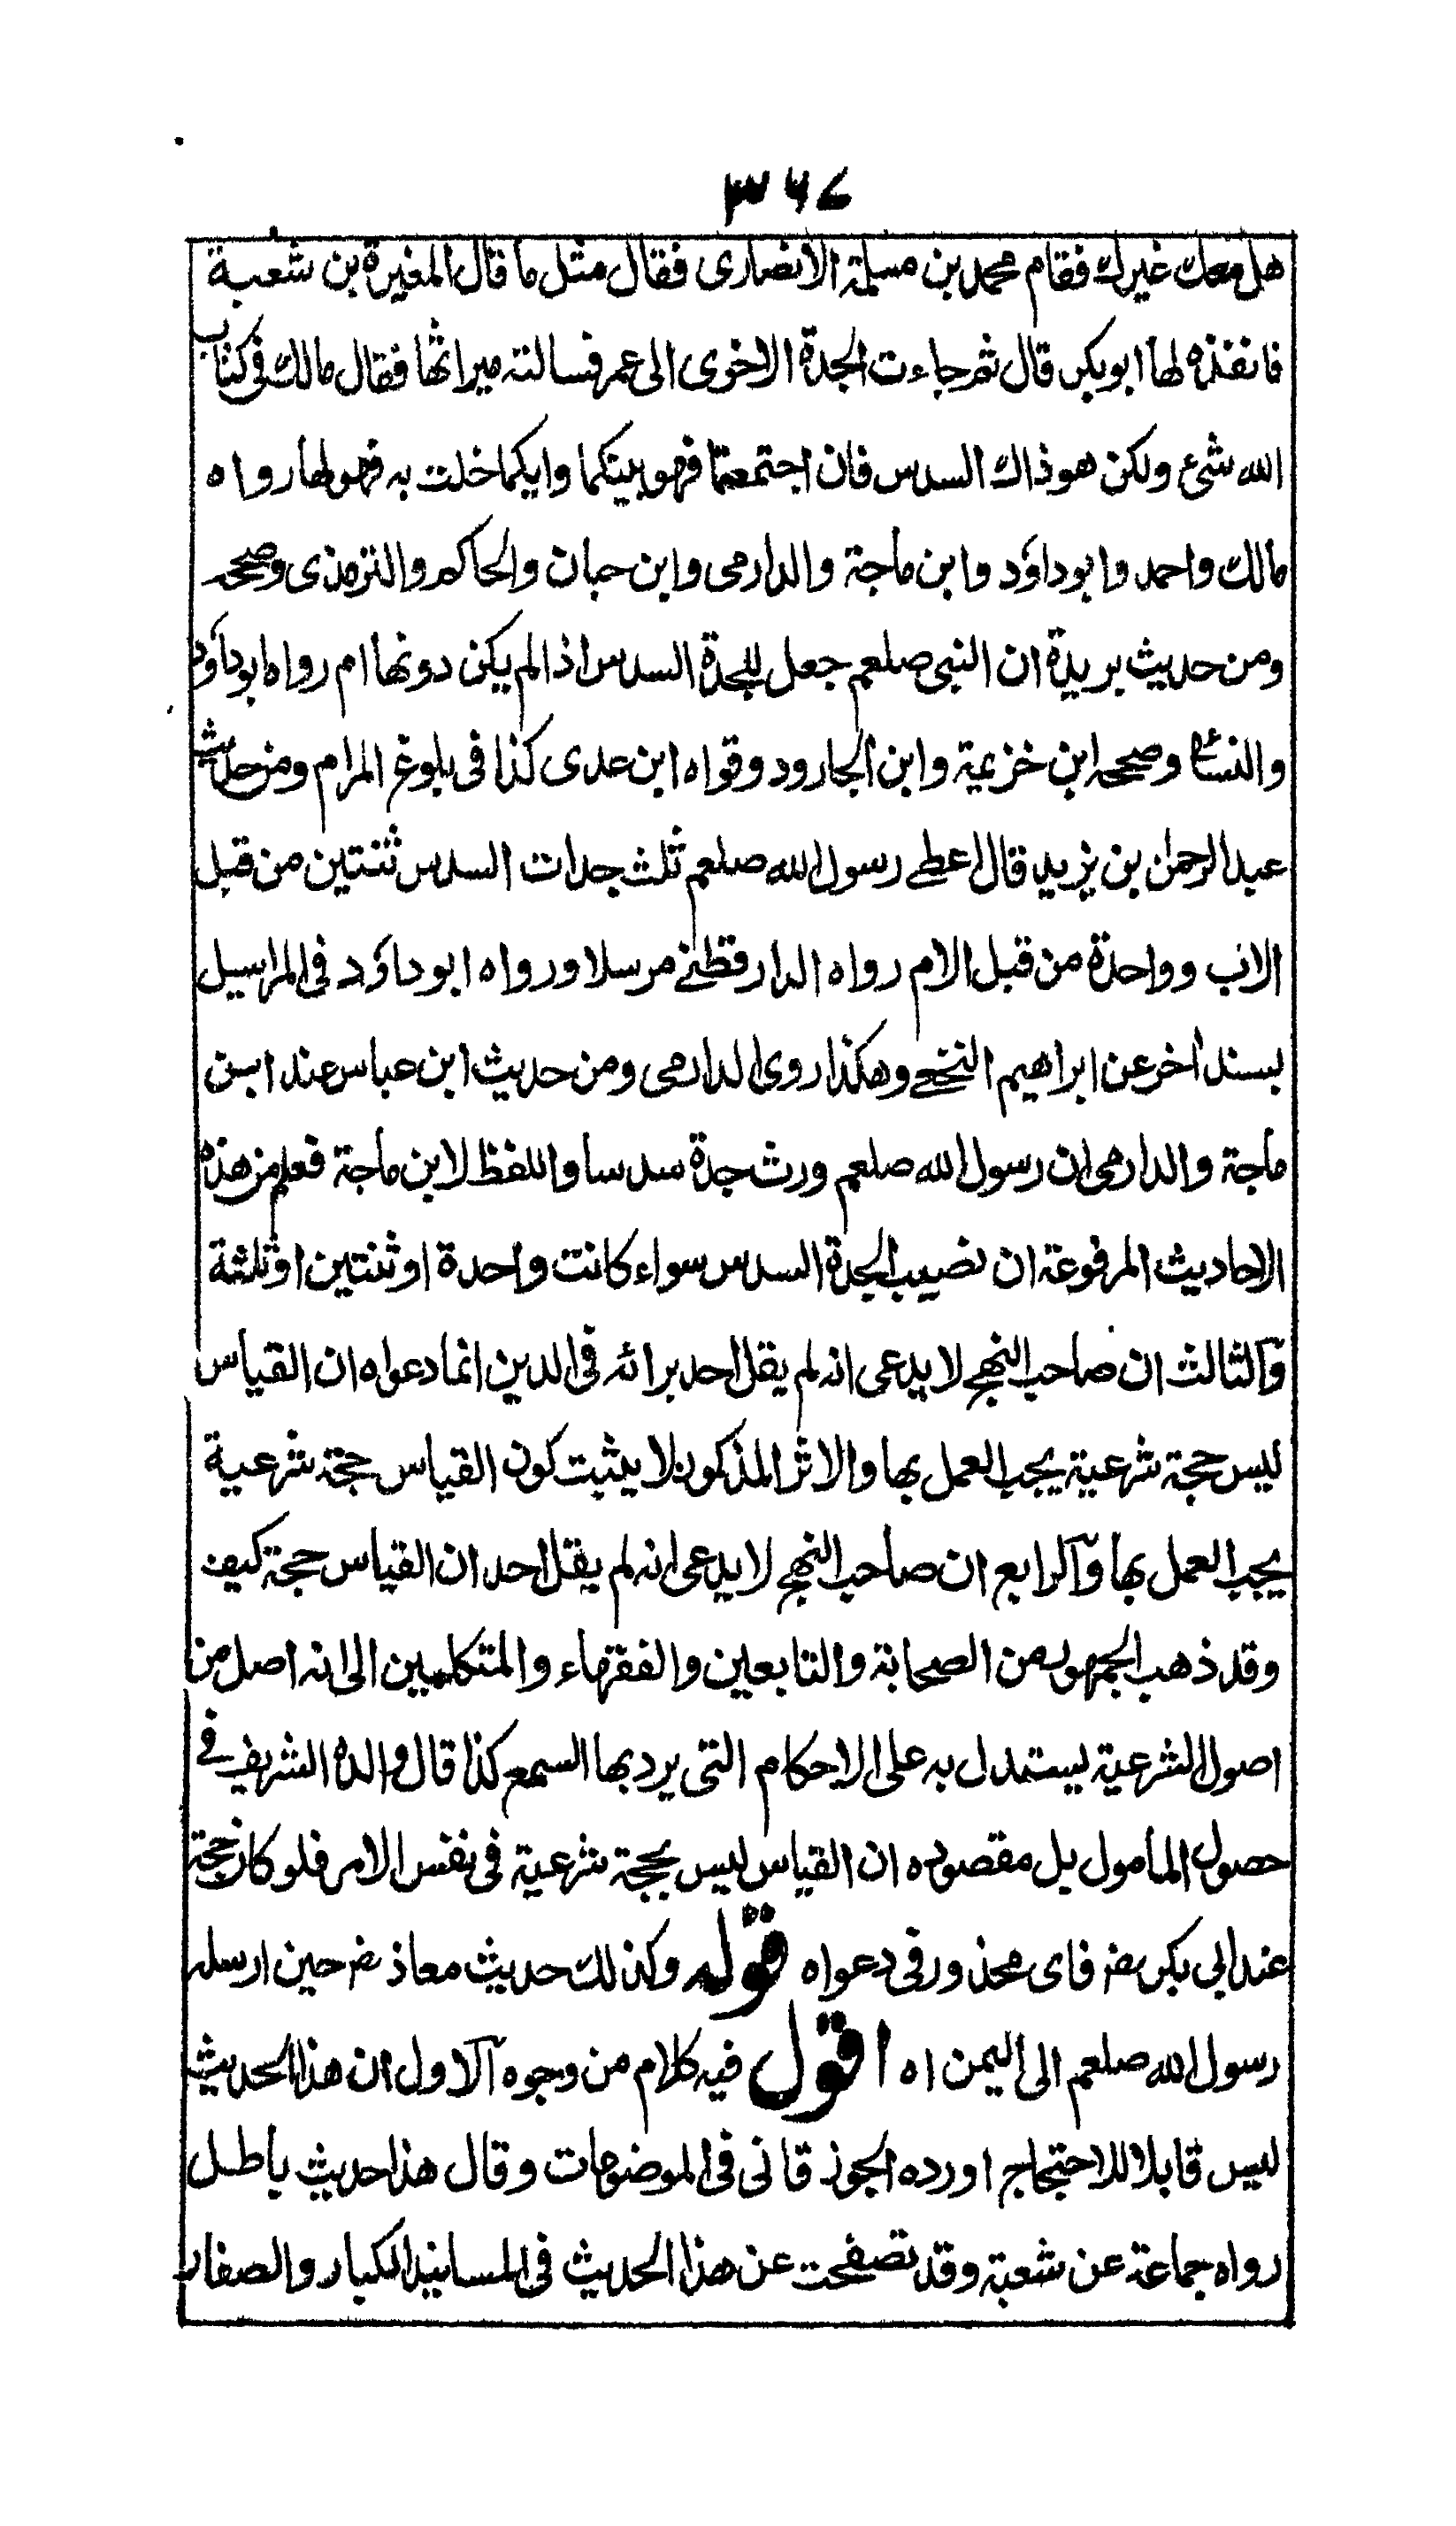 ۳۶۷
هل معك غيرك فقام محمد بن مسلمة الانصارى فقال مثل ما قال المغيرة بن شعبة
فانفذه لها ابوبكر قال ثم جاءت الجدة الاخرى الى عمر فسالته ميراثها فقال مالك فى كتاب
الله شئ ولكن هو ذاك السدس فان اجتمعتما فهو بينكما وايكما خلت به فهو لها رواه
مالك واحمد وابوداؤد وابن ماجة والدارمى وابن حبان والحاكم والترمذى وصححه
ومن حديث بريدة ان النبى صلعم جعل للجدة السدس اذا لم يكن دونها ام رواه ابوداؤد
والنسائى وصححه ابن خزيمة وابن الجارود وقواه ابن عدى كذا فى بلوغ المرام ومن حديث
عبد الرحمن بن يزيد قال اعطى رسول الله صلعم ثلث جدات السدس ثنتين من قبل
الاب وواحدة من قبل الام رواه الدارقطنى مرسلا ورواه ابوداؤد فى المراسيل
بسند اخر عن ابراهيم النخعى وهكذا روى الدارمى ومن حديث ابن عباس عند ابن
ماجة والدارمى ان رسول الله صلعم ورث جدة سدسا واللفظ لابن ماجة فعلم من هذه
الاحاديث المرفوعة ان نصيب الجدة السدس سواء كانت واحدة او ثنتين او ثلثة
وآلثالث ان صاحب النهج لا يدعى انه لم يقل احد برائه فى الدين انما دعواه ان القياس
ليس حجة شرعية يجب العمل بها والاثر المذكور لا يثبت كون القياس حجة شرعية
يجب العمل بها وآلرابع ان صاحب النهج لا يدعى انه لم يقل احد ان القياس حجة كيف
وقد ذهب الجمهور من الصحابة والتابعين والفقهاء والمتكلمين الى انه اصل من
اصول الشرعية يستدل به على الاحكام التى يرد بها السمع كذا قال والده الشريف فى
حصول المأمول بل مقصوده ان القياس ليس بحجة شرعية فى نفس الامر فلو كان حجة
عند ابى بكر رضـ فاى محذور فى دعواه قوله وكذلك حديث معاذ رضـ حين ارسله
رسول الله صلعم الى اليمن اه اقول فيه كلام من وجوه آلاول ان هذا الحديث
ليس قابلا للاحتجاج اورده الجوزقانى فى الموضوعات وقال هذا حديث باطل
رواه جماعة عن شعبة وقد تصفحت عن هذا الحديث فى المسانيد الكبار والصغار